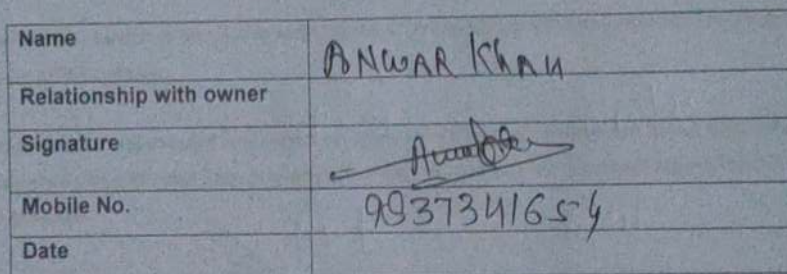 Name ANWAR KhAN
Relationship with owner
Signature
Mobile No. 9937341654
Date